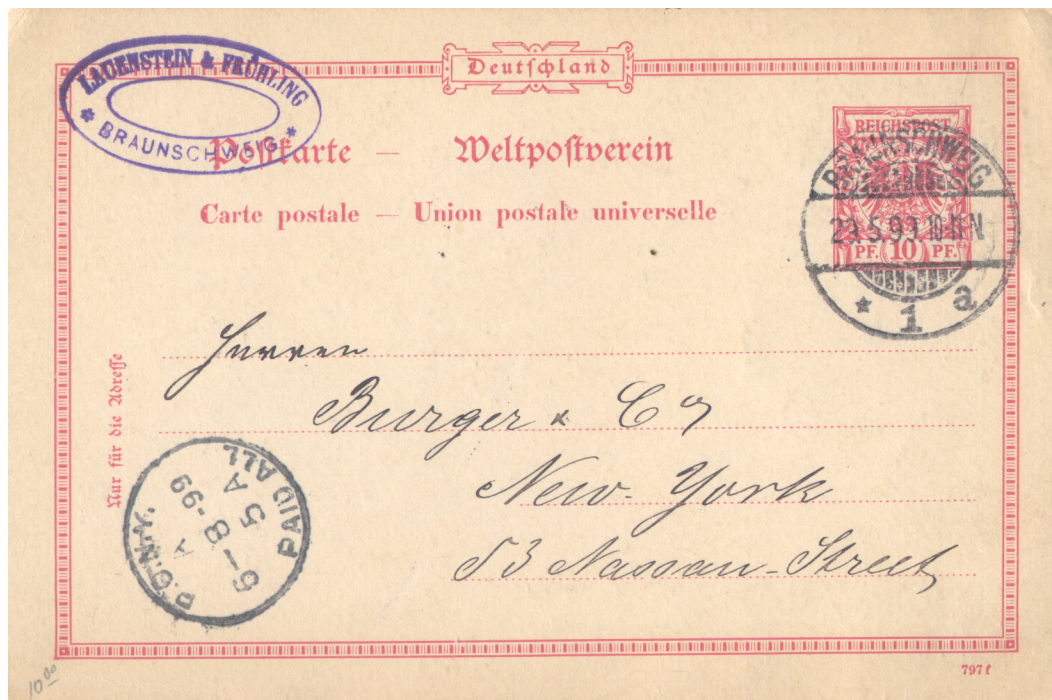 Deutschland
LAUENSTEIN & FRÜHLING
* BRAUNSCHWEIG *
Postkarte — Weltpostverein
Carte postale — Union postale universelle
REICHSPOST
PF. 10 PF.
BRAUNSCHWEIG
5.99.10-11N
* 1 a
Nur für die Adresse
Herren
Burger & Co
New-York
53 Nassau-Street
P.O.N.Y.
A
6-8-99
5 A
PAID ALL
10.00
797 f